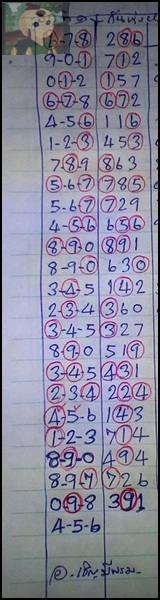 1-7-8 286
9-0-1 712
0-1-2 157
6-7-8 672
4-5-6 116
1-2-3 453
7-8-9 863
5-6-7 785
5-6-7 729
4-5-6 656
8-9-0 891
8-9-0 630
3-4-5 142
2-3-4 360
3-4-5 327
8-9-0 519
3-4-5 431
2-3-4 224
4-5-6 143
1-2-3 714
8-9-0 494
8-9-7 726
0-9-8 391
4-5-6